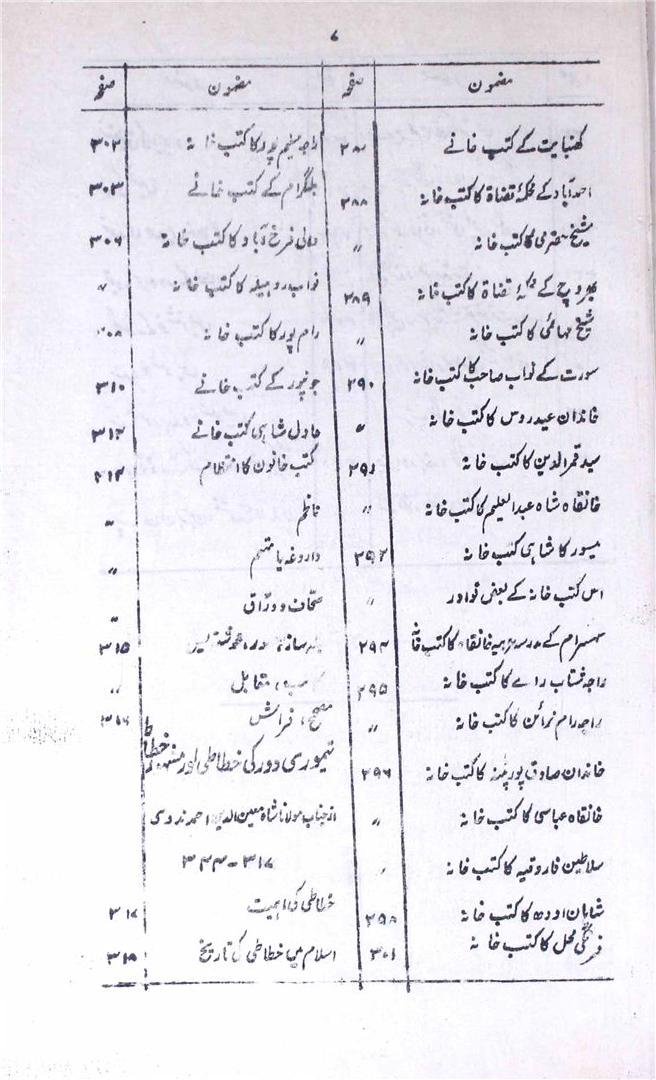 ۷
مضمون
صفحہ
کھنبایت کے کتب خانے
احمدآباد کے محکمۂ قضاۃ کا کتب خانہ
۲۸۸
شیخ کا کتب خانہ
"
بھروچ کے قضاۃ کا کتب خانہ
۲۸۹
شیخ کا کتب خانہ
"
سورت کے نواب صاحب کا کتب خانہ
۲۹۰
خاندان عیدروس کا کتب خانہ
"
سید قمر الدین کا کتب خانہ
۲۹۱
خانقاہ شاہ عبدالعلیم کا کتب خانہ
"
میسور کا شاہی کتب خانہ
۲۹۲
اس کتب خانہ کے بعض نوادر
"
سہسرام کے مدرسہ خانقاہ کا کتب خانہ
۲۹۴
راجہ شتاب رائے کا کتب خانہ
۲۹۵
راجہ رام نرائن کا کتب خانہ
"
خاندان صادق پور پٹنہ کا کتب خانہ
۲۹۶
خانقاہ عباسی کا کتب خانہ
"
سلاطین فاروقیہ کا کتب خانہ
"
شاہان اودھ کا کتب خانہ
۲۹۸
فرنگی محل کا کتب خانہ
۳۰۱
مضمون
صفحہ
راجہ سلیم پور کا کتب خانہ
۳۰۲
بلگرام کے کتب خانے
۳۰۳
والی فرخ آباد کا کتب خانہ
۳۰۶
نواب روہیلہ کا کتب خانہ
"
رام پور کا کتب خانہ
جونپور کے کتب خانے
۳۱۰
عادل شاہی کتب خانے
۳۱۲
کتب خانوں کا انتظام
ناظم
"
داروغہ یا مہتمم
"
صحاف و وراق
"
۳۱۵
مقابل
"
مصحح، فراش
تیموری دور کی خطاطی اور مشہور خطاط
از جناب مولانا شاہ معین الدین احمد ندوی
۳۱۷-۳۴۴
خطاطی کی اہمیت
۳۱۷
اسلام میں خطاطی کی تاریخ
۳۱۸